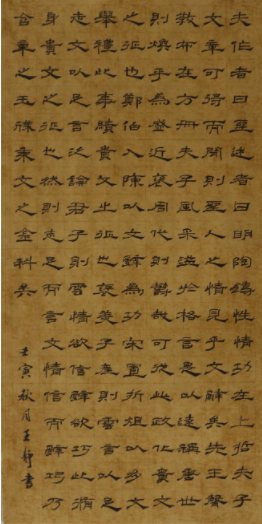 夫作者曰聖述者曰明陶鑄性情功在上哲夫子
文章可得而聞則聖人之情見乎文辭矣先王聲
教布在方冊夫子風采溢於格言是以遠稱唐世
則煥乎為盛近褒周代則鬱哉可從此政化貴文
之征也鄭伯入陳以文辭為功宋置折俎以多文
舉禮此事蹟貴文之征也褒美子產則雲言以足
志文以足言泛論君子則雲情欲信辭欲巧此脩
身貴文之征也然則志足而言文情信而辭巧乃
含章之玉牒秉文之金科矣
壬寅秋月王靜書